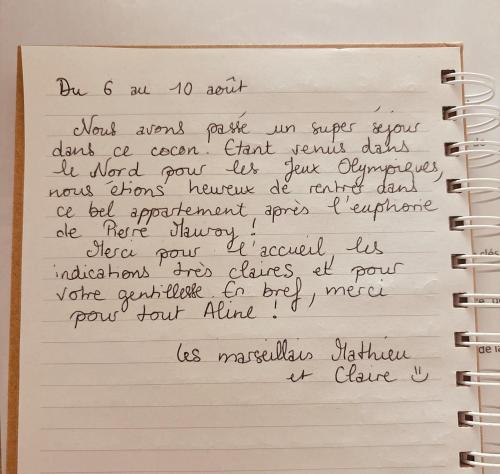 Du 6 au 10 août
Nous avons passé un super séjour
dans ce cocon ! Etant venus dans
le Nord pour les Jeux Olympiques,
nous étions heureux de rentrer dans
ce bel appartement, après l'euphorie
de Pierre Mauroy !
Merci pour l'accueil, les
indications très claires, et pour
votre gentillesse. En bref, merci
pour tout Aline !
Les marseillais Mathieu
et Claire
de la